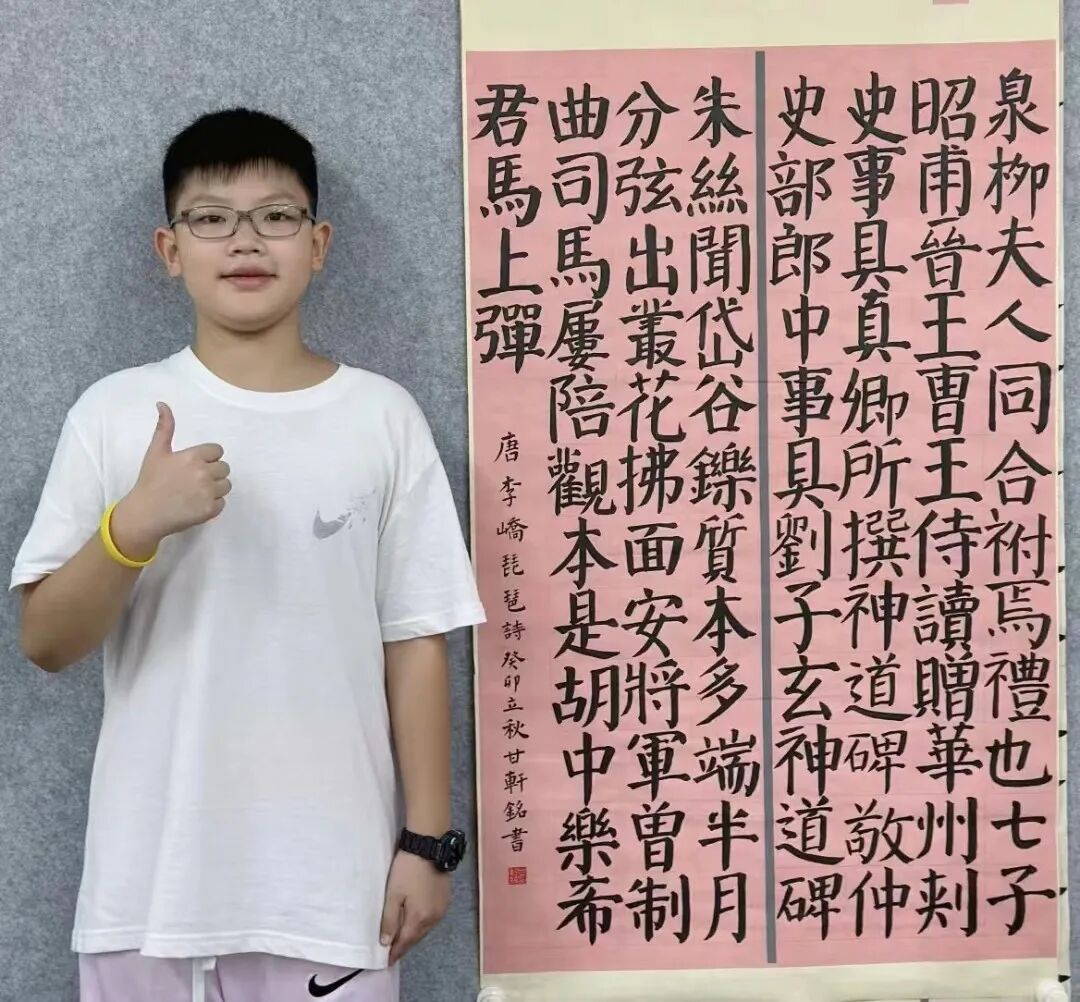 泉柳夫人同合祔焉禮也七子
昭甫晉王曹王侍讀贈華州刺
史事具真卿所撰神道碑敬仲
史部郎中事具劉子玄神道碑
朱絲聞岱谷鑠質本多端半月
分弦出叢花拂面安將軍曾制
曲司馬屢陪觀本是胡中樂希
君馬上彈
唐李嶠琵琶詩癸卯立秋甘軒銘書